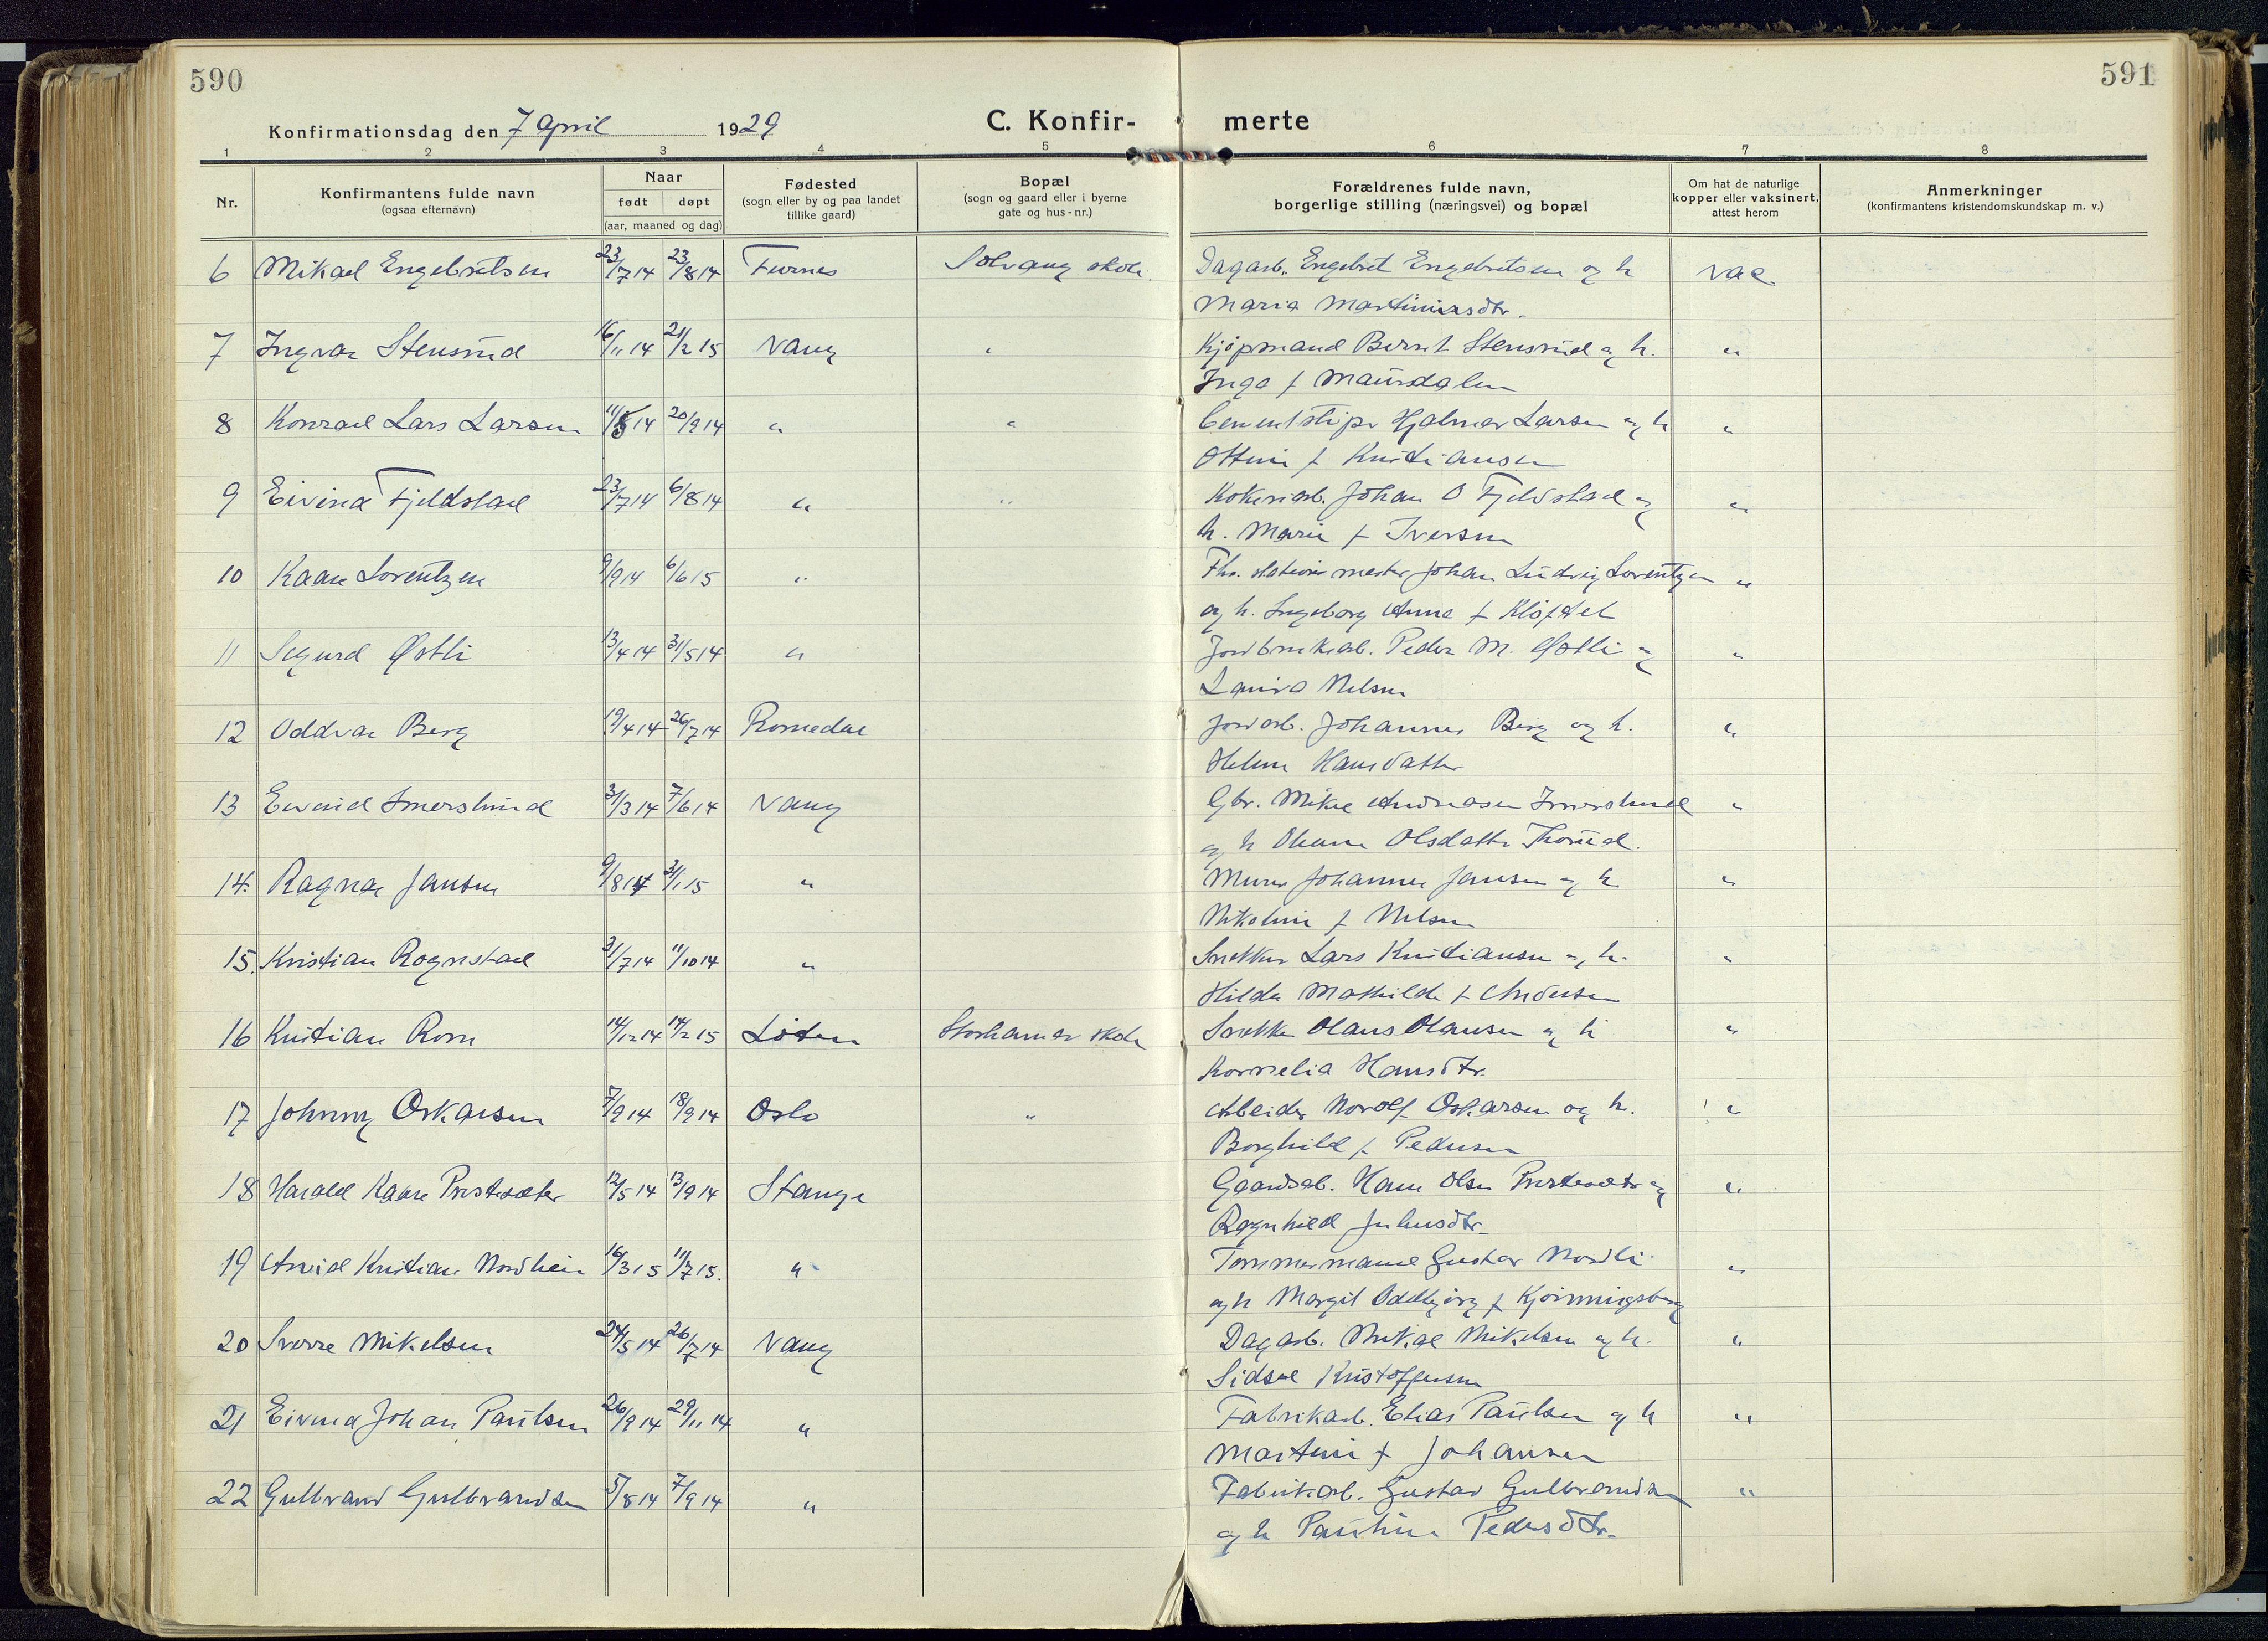 590
591
Konfirmationsdag den 7 April 1929
C. Konfir- merte
1 2 3 4 5 6 7 8
Nr. Konfirmantens fulde navn (ogsaa efternavn) Naar født døpt (aar, maaned og dag) Fødested (sogn eller by og paa landet tillike gaard) Bopæl (sogn og gaard eller i byerne gate og hus-nr.) Forældrenes fulde navn, borgerlige stilling (næringsvei) og bopæl Om hat de naturlige kopper eller vaksinert, attest herom Anmerkninger (konfirmantens kristendomskundskap m. v.)
6 Mikael Engebretsen 23/7 14 23/8 14 Furnes Solvang skole. Dagarb. Engebret Engebretsen og h vac
Maria Martiniusdtr.
7 Ingvar Stensrud 16/11 14 21/2 15 Vang " Kjøpmand Bernt Stensrud og h. "
Inga f
8 Konrad Lars Larsen 11/8 14 20/9 14 " " Hjalmar Larsen og h "
f Kristiansen
9 Eivind Fjeldstad 23/7 14 6/8 14 " " Johan O Fjeldstad og "
h. Marie f Iversen
10 Kaare Lorentzen 9/9 14 6/6 15 " Fhv. stationsmester Johan Ludvig Lorentzen "
og h. Ingeborg Anna f Kløftet
11 Sigurd Østli 13/4 14 31/5 14 " Jordbruksarb. Peder M. Østli og "
Laura Nilsen
12 Oddvar Berg 19/4 14 26/7 14 Romedal Jordarb. Johannes Berg og h. "
Helene Hansdatter
13 Eivind Imerslund 31/3 14 7/6 14 Vang Gbr. Mikal Andreasen Imerslund "
og h Olsdatter
14. Ragnar Jansen 9/8 14 31/1 15 " Murer Johannes Jansen og h. "
Nikoline f Nilsen
15. Kristian Rognstad 31/7 14 11/10 14 " Snekker Lars Kristiansen og h. "
Hilda Mathilde f Andersen
16 Kristian Roen 14/12 14 14/2 15 Løten Storhamar skole Snekker Olaus Olausen og h "
Kornelia Hansdtr.
17 Johnny Oskarsen 7/9 14 18/9 14 Oslo " Arbeider Norolf Oskarsen og h. "
Borghild f Pedersen
18 Harald Kaare Prestesæter 12/5 14 13/9 14 Stange Gaardsarb. Hans Olsen Prestesæter og "
Ragnhild Juliusdtr.
19 Arvid Kristian 16/3 15 11/7 15. " Tømmermand Gustav "
og h Margit Oddbjørg f
20 Sverre Mikelsen 24/5 14 26/7 14 Vang Dagarb. Mikal Mikelsen og h. "
Sidsel Kristoffersen
21 Eivind Johan Paulsen 26/9 14 29/11 14 " Fabrikarb. Elias Paulsen og h "
Martine f Johansen
22 Gulbrand Gulbrandsen 5/8 14 7/9 14 " Fabrikarb. Gustav Gulbrandsen "
og h Pauline Pedersdtr.